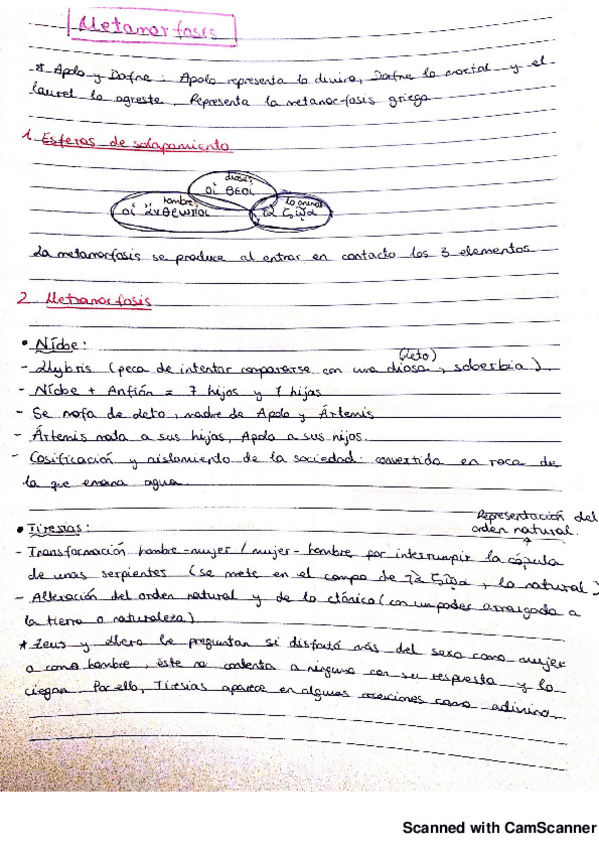 Metamorfosis
* Apolo y Dafne: Apolo representa lo divino, Dafne lo mortal y el
laurel lo agreste. Representa la metamorfosis griega
1. Esferas de solapamiento
dioses
οἱ θεοί
hombre
οἱ ἄνθρωποι
lo animal
τὰ ζῷα
La metamorfosis se produce al entrar en contacto los 3 elementos
2. Metamorfosis
• Níobe:
(Leto)
- Hybris (peca de intentar compararse con una diosa, soberbia).
- Níobe + Anfión = 7 hijos y 7 hijas
- Se mofa de Leto, madre de Apolo y Ártemis
- Ártemis mata a sus hijas, Apolo a sus hijos.
- Cosificación y aislamiento de la sociedad: convertida en roca de
la que emana agua.
Representación del
orden natural.
• Tiresias:
- Transformación hombre-mujer / mujer-hombre por interrumpir la cópula
de unas serpientes (se mete en el campo de τὰ ζῷα, lo natural)
- Alteración del orden natural y de lo ctónico (con un poder arraigado a
la tierra o naturaleza)
* Zeus y Hera le preguntan si disfrutó más del sexo como mujer
o como hombre, éste no contenta a ninguno con su respuesta y lo
ciegan. Por ello, Tiresias aparece en algunas ocasiones como adivino.
Scanned with CamScanner